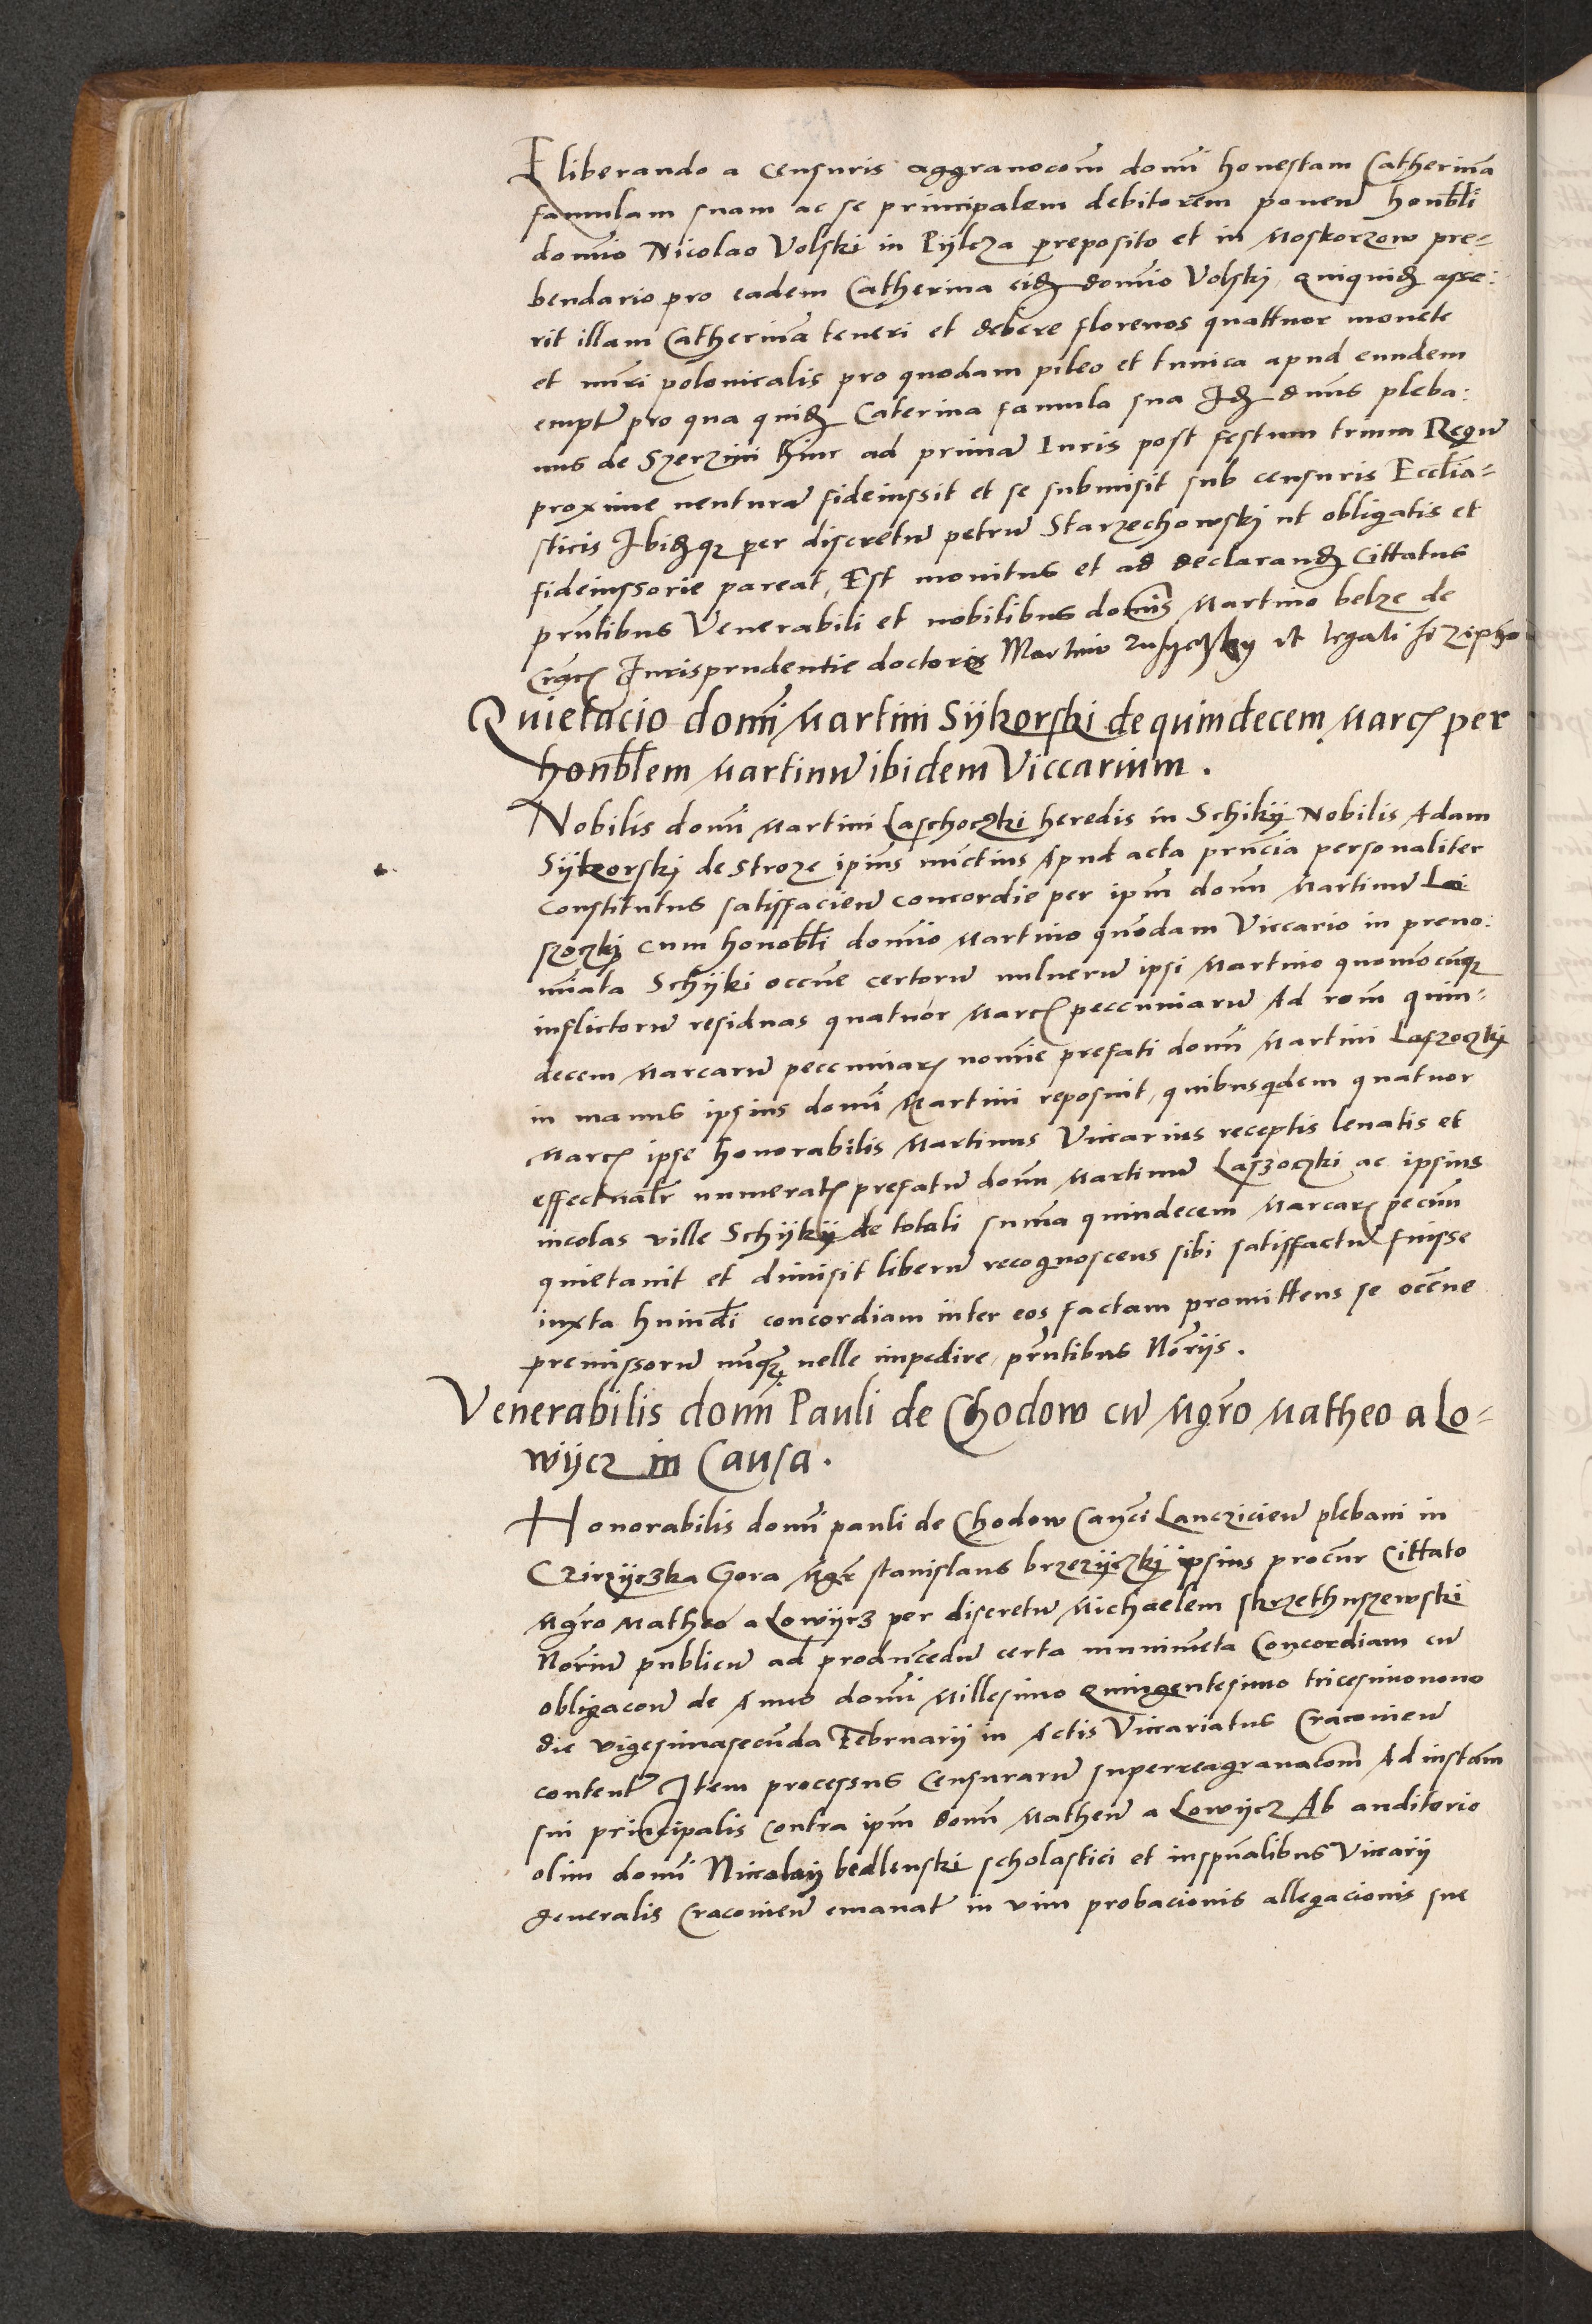 Eliberando a censuris aggravocom̃ domĩ honestam Catherinã
famulam suam ac se principalem debitorem ponen̄ honb̃li
domĩo Nicolao Volski in Pÿlcza preposito et in Moskorzow pre=
bendario pro eadem Catherina eidẽ domĩo Volskj, quiquidẽ asse:
rit illam Catherinã teneri et debere florenos quattuor monete
et nũri polonicalis pro quodam pileo et tunica apud eundem
empt̃ pro qua quidẽ Caterina famula sua Idẽ dñus pleba:
nus de Szerzini hinc ad primã Iuris post festum trium Regũ
proxime venturã fideiussit et se submisit sub censuris Eccl̃ia=
sticis Ibidẽqꝫ per discretũ petrũ Starzechowskj ut obligatis et
fideiussorie pareat, Est monitus et ad declarandẽ Cittatus
pñtibus Venerabili et nobilibus domĩs Martino belze de
Iurisprudentie doctore Martino et
Quietacio domĩ Martini Sÿkorskj de quindecem Marcꝭ per
honb̃lem Martinũ ibidem Viccarium.
Nobilis domĩ Martini Laschoczki heredis in Schikÿ Nobilis Adam
Sÿkorskj de Stroze ipĩus nunctius Apud acta pñcia personaliter
Constitutus satisfaciẽn concordie per ipm̃ domñ Martinũ La
szoczkj cum honob̃li domĩo Martino quõdam Viccario in preno:
minata Schÿki occñe certorũ vulnerũ ipsi Martino quomõcũqꝫ
inflictorũ residuas quatuor Marcꝭ peccuniarũ Ad rom̃ quin=
decem Marcarũ peccuniarꝭ nomĩe prefati domĩ Martini Laszoczkj
in manus ipsius domĩ Martini reposuit, quibusquidem quatuor
Marcꝭ ipse honorabilis Martinus Viccarius receptis levatis et
effectualr̃ numeratꝭ prefatũ domñ Martinũ Laszoczki ac ipsius
incolas ville Schÿkÿ de totali sum̃a quindecem Marcarꝭ pecũn
quietavit et dimisit liberũ recognoscens sibi satisfactũ fuisse
iuxta huiusd̃i concordiam inter eos factam promittens se occñe
premissorũ nunqꝫ velle impedire, pñtibus Nõrijs.
Venerabilis domĩ Pauli de Chodow cũ Mgr̃o Matheo a Lo=
wÿcz in Causa.
Honorabilis domĩ pauli de Chodow Canc̃i Lancziciẽn plebani in
Czirzÿczka Gora Mgr̃ stanislaus brzezÿczkj ipsius procur̃ Cittato
Mgr̃o Matheo a Lowÿcz per discretũ Michaelem skrzethuszewski
Nor̃iũ publicũ ad producẽdũ certa munimẽta Concordiam cũ
obligacoñ de Anno domĩ Millesimo quingentesimo tricesimonono
die vigesimasecũda Februarij in Actis Viccariatus Cracoviẽn
content̃ Item processus Censurarũ superreagravacom̃ Ad instãm
sui principalis contra ipm̃ domñ Matheũ a Lowÿcz Ab auditorio
olim domĩ Niccolaÿ bedlenski scholastici et inspũalibus Viccarij
generalis Cracoviẽn emanat̃ in vim probacionis allegacionis sue